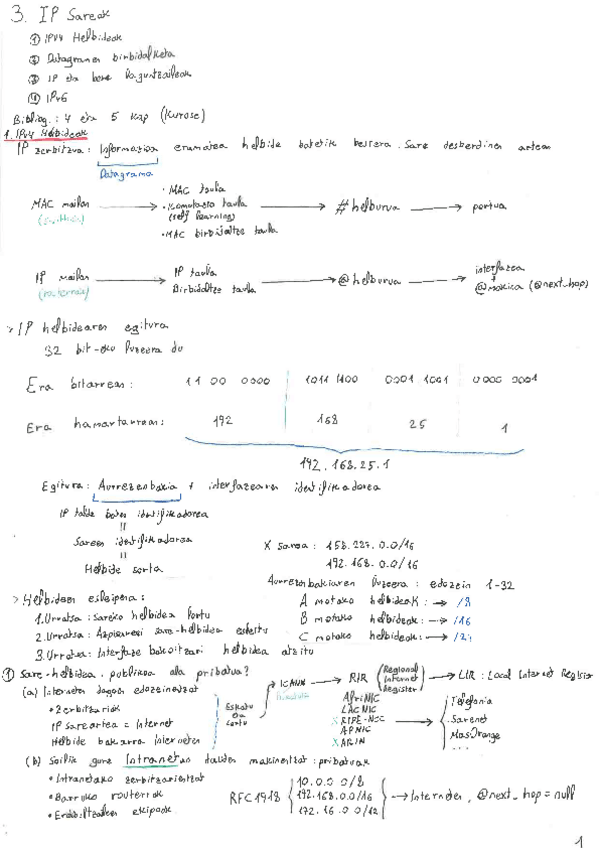 3. IP Sareak
① IPv4 Helbideak
② Datagramen birbidalketa
③ IP eta bere laguntzaileak
④ IPv6
Bibliog.: 4 eta 5 kap (Kurose)
1. IPv4 Helbideak
IP zerbitzua: Informazioa eramatea helbide batetik bestera. Sare desberdinen artean
Datagrama
MAC mailan (switchak) → • MAC taula
• Komutazio taula (self learning)
• MAC birbidaltze taula
→ # helburua → portua
IP mailan (routerrak) → IP taula
Birbidaltze taula
→ @helburua → interfazea
@makina (@next_hop)
> IP helbidearen egitura
32 bit-eko luzeera du
Era bitarrean: 11 00 0000 1011 1100 0001 1001 0000 0001
Era hamartarrean: 192 168 25 1
192.168.25.1
Egitura: Aurrezenbakia + interfazearen identifikadorea
IP talde baten identifikadorea
=
Sarearen identifikadorea
=
Helbide sorta
X sarea: 158.227.0.0/16
192.168.0.0/16
Aurrezenbakiaren luzeera: edozein 1-32
A motako helbideak: → /8
B motako helbideak: → /16
C motako helbideak: → /24
> Helbideen esleipena:
1. Urratsa: Sareko helbidea lortu
2. Urratsa: Azpisareei sare-helbidea esleitu
3. Urratsa: Interfaze bakoitzari helbidea
① Sare-helbidea publikoa ala pribatua?
(a) Interneten dagoen edozeinentzat
• Zerbitzariak
IP sareartea = Internet
Helbide bakarra Interneten
Eskatu
Eta
Lortu
→ ICANN → RIR (Regional Internet Register) → LIR: Local Internet Register
AfriNIC
LACNIC
X RIPE-NCC
APNIC
X ARIN
Telefonia
Sarenet
MasOrange
...
(b) Soilik gure Intranetan dauden makinentzat: pribatuak
• Intranetako zerbitzarientzat
• Barruko routerrak
• Erabiltzaileen ekipoak
RFC1918 { 10.0.0.0/8
192.168.0.0/16
172.16.0.0/12 } → Interneten, @next_hop = null
1